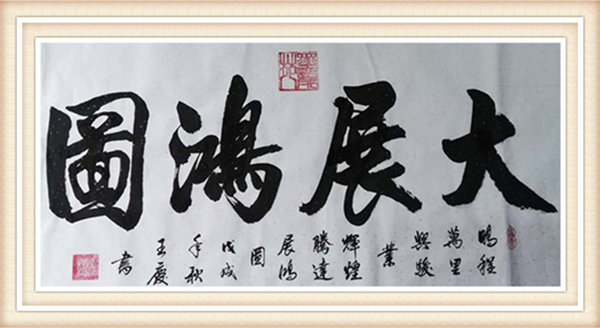 大展鴻圖
鵬程
萬里
興駿
業
輝煌
騰達
展鴻
圖
戊戌
年秋
王慶
書